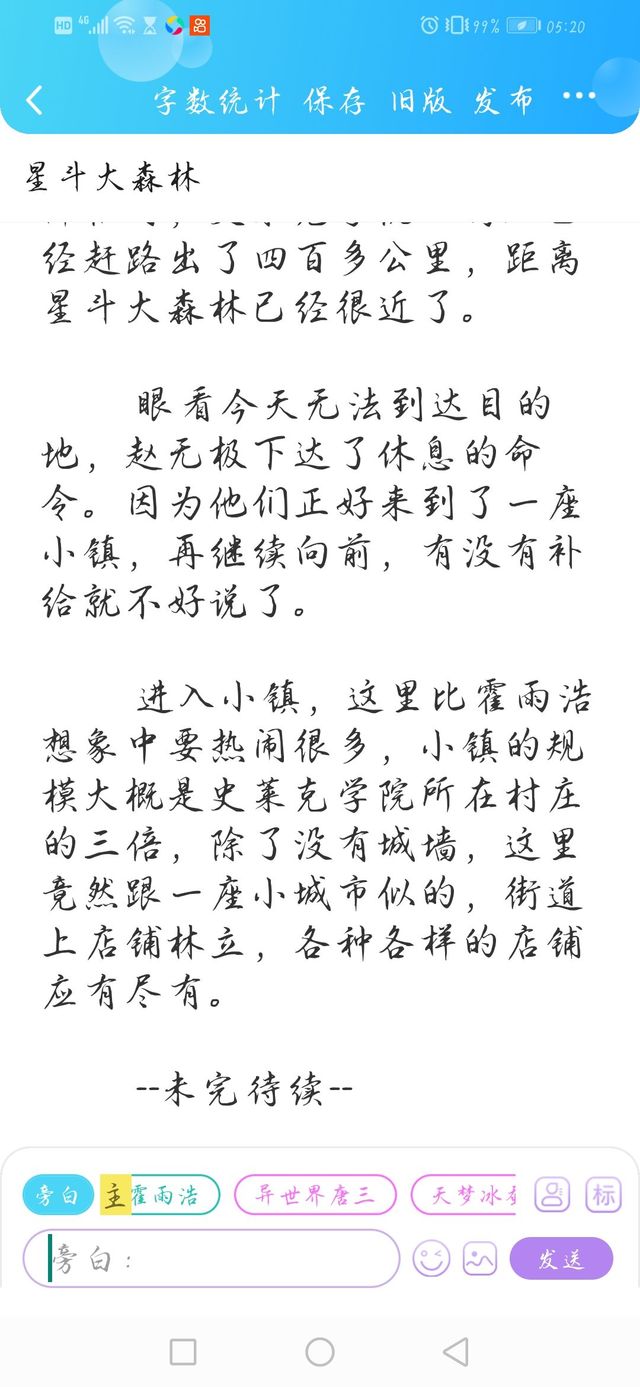 HD 4G 99% 05:20
字数统计 保存 旧版 发布 ···
星斗大森林
经赶路出了四百多公里，距离
星斗大森林已经很近了。
眼看今天无法到达目的
地，赵无极下达了休息的命
令。因为他们正好来到了一座
小镇，再继续向前，有没有补
给就不好说了。
进入小镇，这里比霍雨浩
想象中要热闹很多，小镇的规
模大概是史莱克学院所在村庄
的三倍，除了没有城墙，这里
竟然跟一座小城市似的，街道
上店铺林立，各种各样的店铺
应有尽有。
--未完待续--
旁白 主 霍雨浩 异世界唐三 天梦冰 标
旁白：
发送